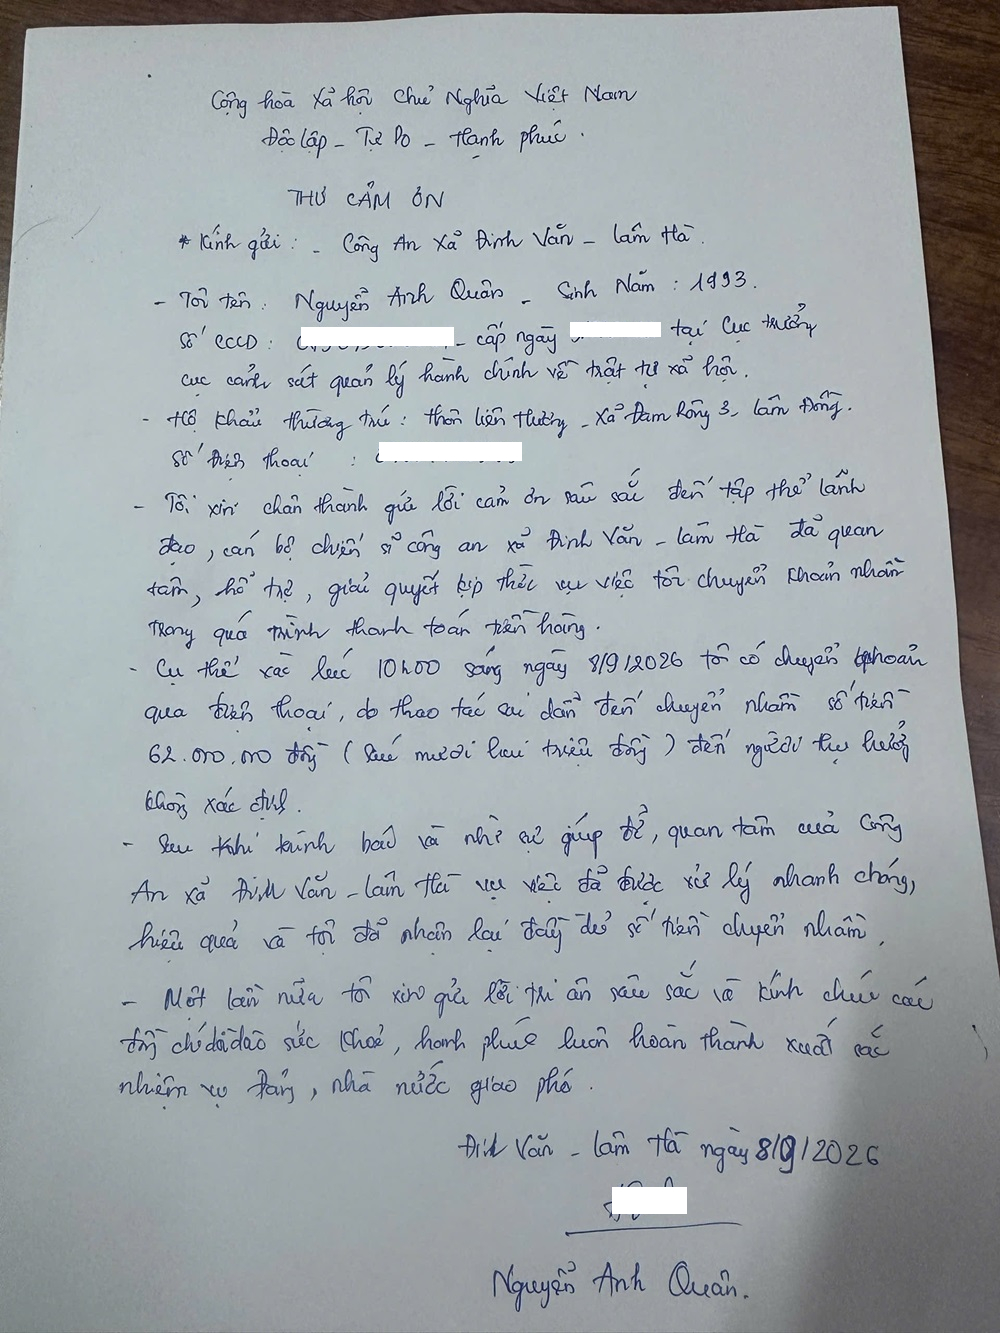 Cộng hòa Xả hội Chủ Nghĩa Việt Nam
Độc lập - Tự Do - Hạnh phúc.
THƯ CẢM ƠN
* Kính gửi : - Công An Xả Đinh Văn - Lâm Hà.
- Tôi tên : Nguyễn Anh Quân - Sinh Năm : 1993.
Số CCCD : - cấp ngày tại Cục trưởng
cục cảnh sát quản lý hành chính về trật tự xả hội.
- Hộ khẩu thường trú : thôn liên Hương - Xả Đam Rông 3 - Lâm Đồng.
Số điện thoại :
- Tôi xin chân thành gửi lời cảm ơn sâu sắc đến tập thể lãnh
đạo, cán bộ chiến sỉ công an xả Đinh Văn - Lâm Hà đả quan
tâm, hổ trợ, giải quyết kịp thời vụ việc tôi chuyển khoản nhầm
trong quá trình thanh toán tiền hàng.
- Cụ thể vào lúc 10h00 sáng ngày 8/9/2026 tôi có chuyển khoản
qua điện thoại, do thao tác sai dẩn đến chuyển nhầm số tiền
62.000.000 đồng (Sáu mươi hai triệu đồng) đến người thụ hưởng
không xác định.
- Sau khi trình báo và nhờ sự giúp đở, quan tâm của Công
An xả Đinh Văn - Lâm Hà vụ việc đả được xử lý nhanh chóng,
hiệu quả và tôi đả nhận lại đầy đủ số tiền chuyển nhầm.
- Một lần nửa tôi xin gửi lời tri ân sâu sắc và kính chúc các
đồng chí dồi dào sức khoẻ, hạnh phúc luôn hoàn thành xuất sắc
nhiệm vụ Đảng, nhà nước giao phó.
Đinh Văn - Lâm Hà ngày 8/9/2026
Nguyễn Anh Quân.